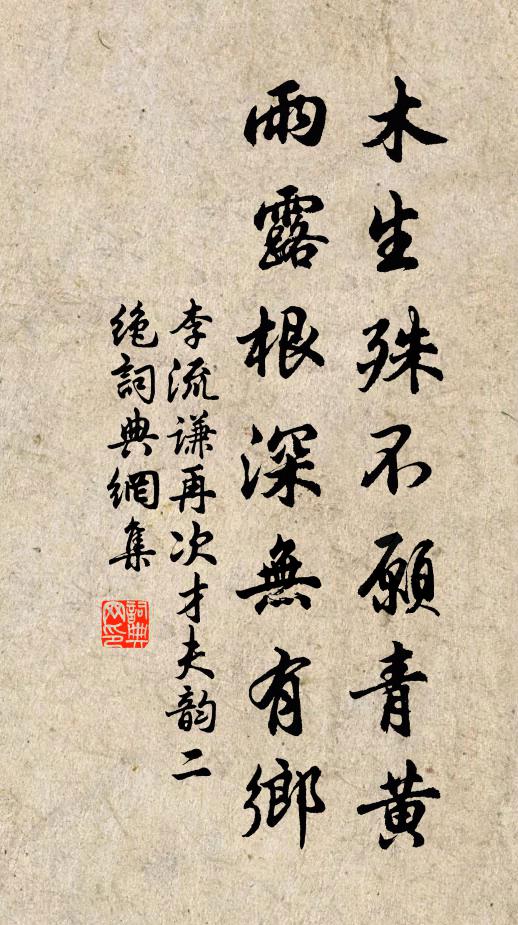 木生殊不願青黃
雨露根深無有鄉
李流謙再次才夫韵二
绝詞典網集
詞典
网印